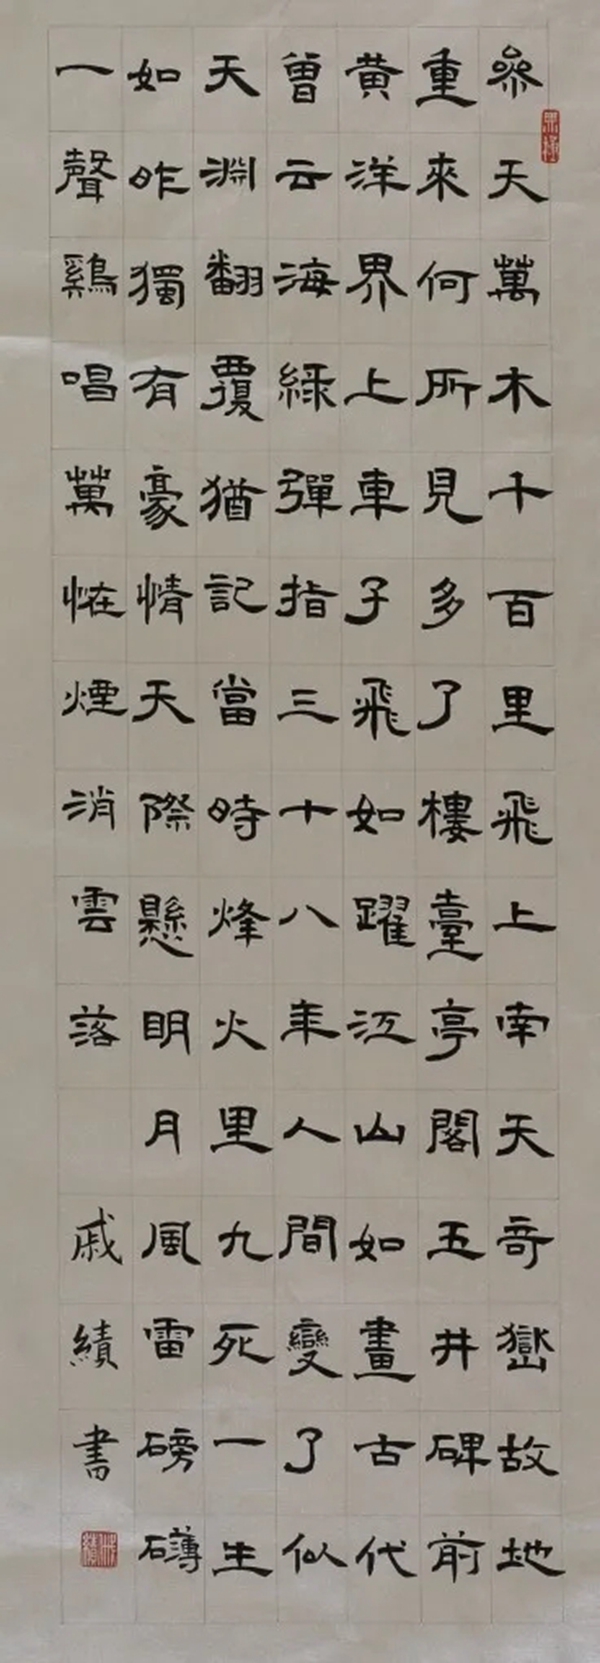 參天萬木千百里飛上南天奇嶽故地
重來何所見多了樓臺亭閣五井碑前
黃洋界上車子飛如躍江山如畫古代
曾云海綠彈指三十八年人間變了似
天淵翻覆猶記當時烽火里九死一生
如昨獨有豪情天際懸明月風雷磅礴
一聲雞唱萬怪煙消雲落
戚績書